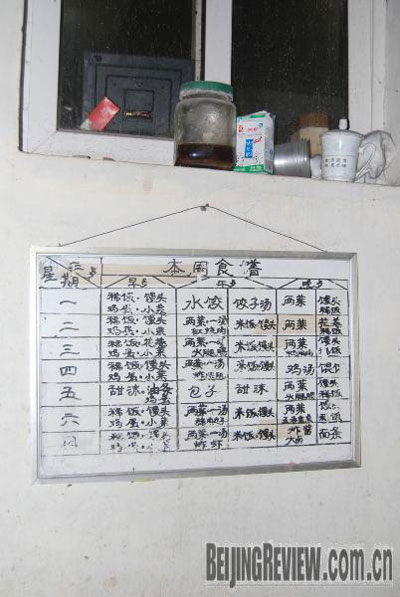 本周食谱
星期 餐 早 午 晚
一 稀饭·馒头 鸡蛋·小菜 水饺 饺子汤 两菜 馒头 稀饭
二 稀饭·馒头 鸡蛋·小菜 两菜一汤 红烧肉 米饭·馒头 两菜 花卷 稀饭
三 稀饭·花卷 鸡蛋·小菜 两菜一汤 火腿肠 米饭·馒头 两菜 馒头
四 稀饭·馒头 鸡蛋·小菜 两菜一汤 米饭·馒头 鸡汤
五 甜沫·油条 包子 甜沫 两菜 火腿肠 馒头 稀饭
六 稀饭·馒头 鸡蛋·小菜 两菜一汤 米饭·馒头 两菜
日 稀饭·馒头 鸡蛋·小菜 两菜一汤 炸虾 米饭·馒头 炸酱 面条
BEIJINGREVIEW.com.cn